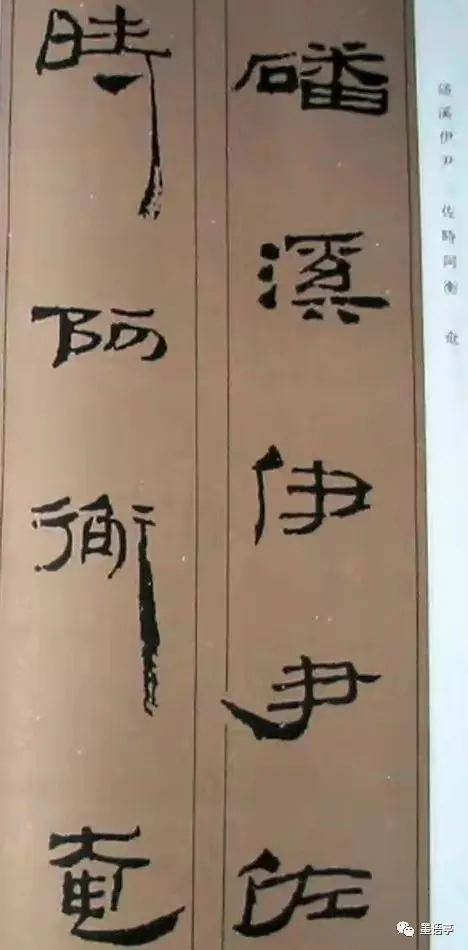 磻溪伊尹佐
時阿衡奄
磻溪伊尹 佐時阿衡 奄
墨语亭